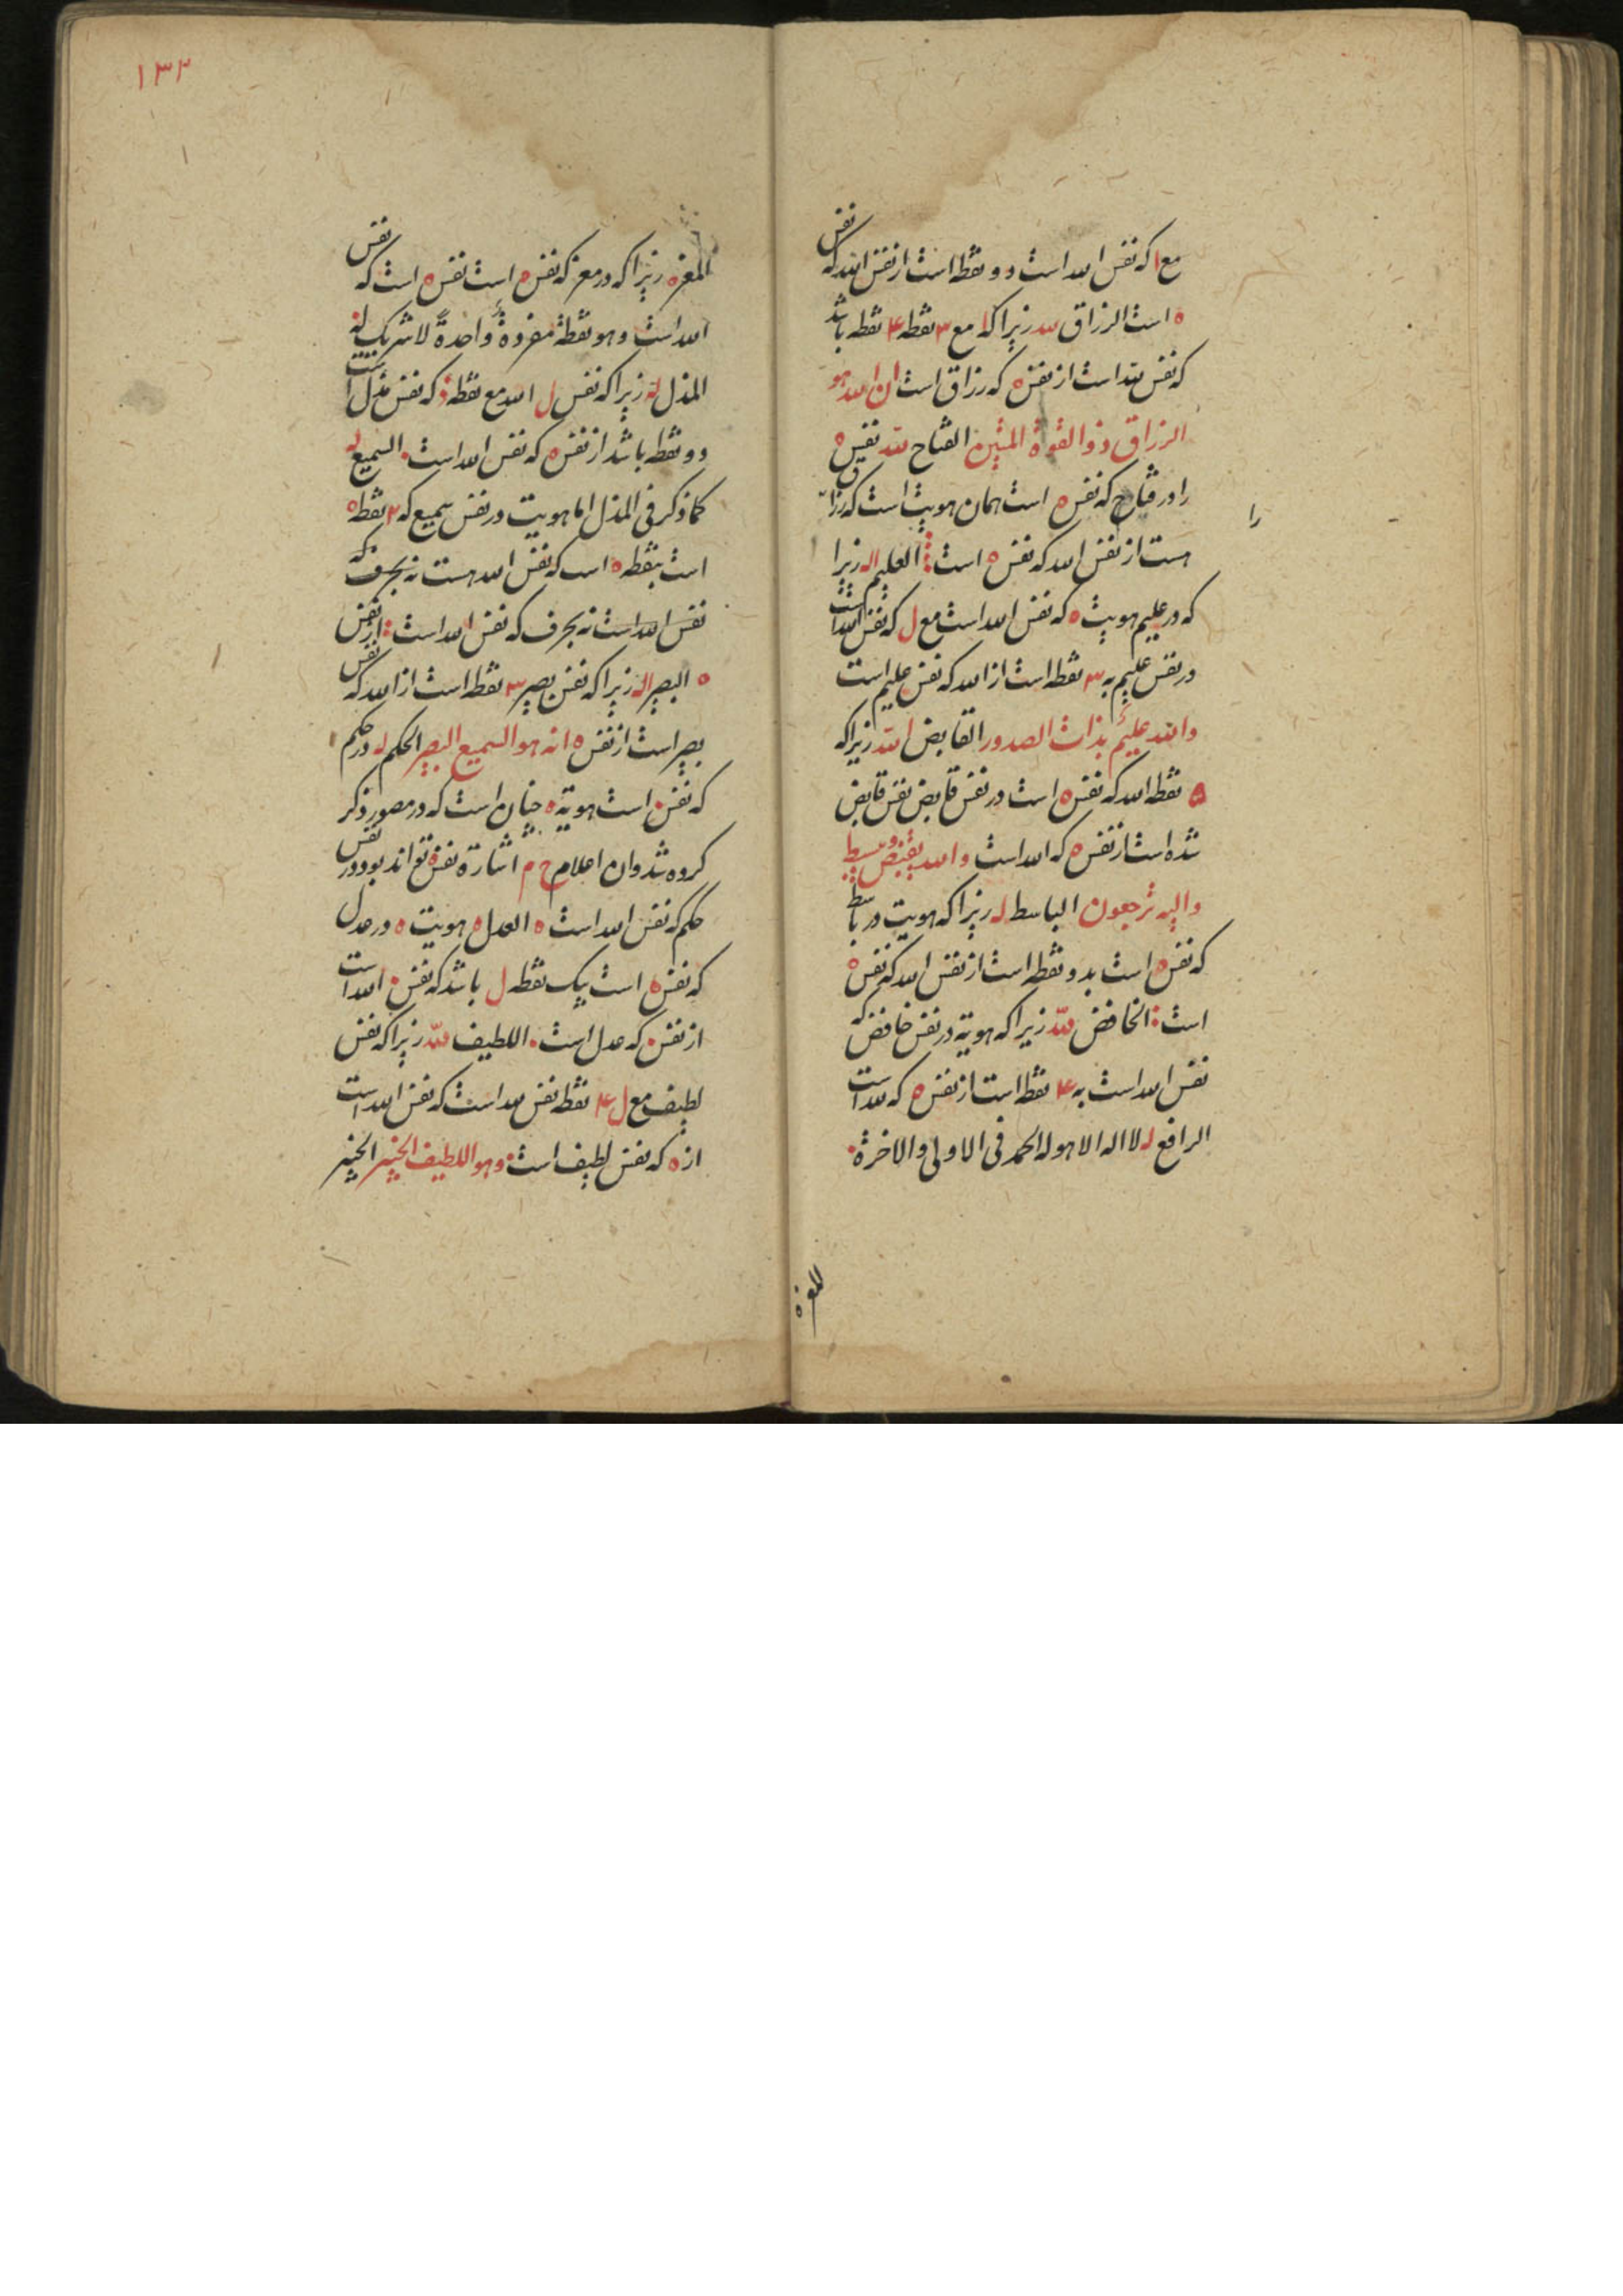 مع ا که نفس الله است دو نقطه است از نفس الله که نفس
ه است الرزاق لله زیرا که ا مع ۳ نقطه ۴ نقطه باشد
که نفس لله است از نفس ه که رزاق است ان الله هو
الرزاق ذو القوة المتین الفتاح لله نفس ه
را در فتاح که نفس ه است همان هویت است که رزاق
را
هست از نفس الله که نفس ه است العلیم اله زیرا
که در علیم هویت ه که نفس الله است مع ل که نفس الله است
در نفس علیم به ۳ نقطه است از الله که نفس علیم است
والله علیم بذات الصدور القابض لله زیرا که
۵ نقطه الله که نفس ه است در نفس قابض نفس قابض
شده است از نفس ه که الله است والله یقبض و یبسط
والیه ترجعون الباسط له زیرا که هویت در باسط
که نفس ه است بدو نقطه است از نفس الله که نفس ه
است الخافض لله زیرا که هویة در نفس خافض که
نفس الله است به ۴ نقطه است از نفس ه که لله است
الرافع له لا اله الا هو له الحمد فی الاولی والاخرة
المعز ه
۱۳۲
المعز ه زیرا که در معز که نفس ه است نفس ه است که نفس
الله است و هو نقطة مفردة واحدة لا شریک له
المذل له زیرا که نفس ل الله مع نقطه ذ که نفس مذل است
دو نقطه باشد از نفس ه که نفس الله است السمیع له
کما ذکر فی المذل اما هویت در نفس سمیع که ۲ نقطه ه
است بنقطه ه است که نفس الله هست نه بحرف که
نفس الله است نه بحرف که نفس الله است از نفس
ه البصیر اله زیرا که نفس بصیر ۳ نقطه است از الله که نفس
بصیر است از نفس ه انه هو السمیع البصیر الحکم له در حکم
که نفس است هویة ه چنان است که در مصور ذکر
کرده شد وان اعلام ح م اشارة نفس ه تواند بود در نفس
حکم که نفس الله است ه العدل ه هویت ه در عدل
که نفس ه است بیک نقطه ل باشد که نفس الله است
از نفس که عدل است اللطیف لله زیرا که نفس
لطیف مع ل ۴ نقطه نفس لله است که نفس الله است
از ه که نفس لطیف است وهو اللطیف الخبیر الخبیر